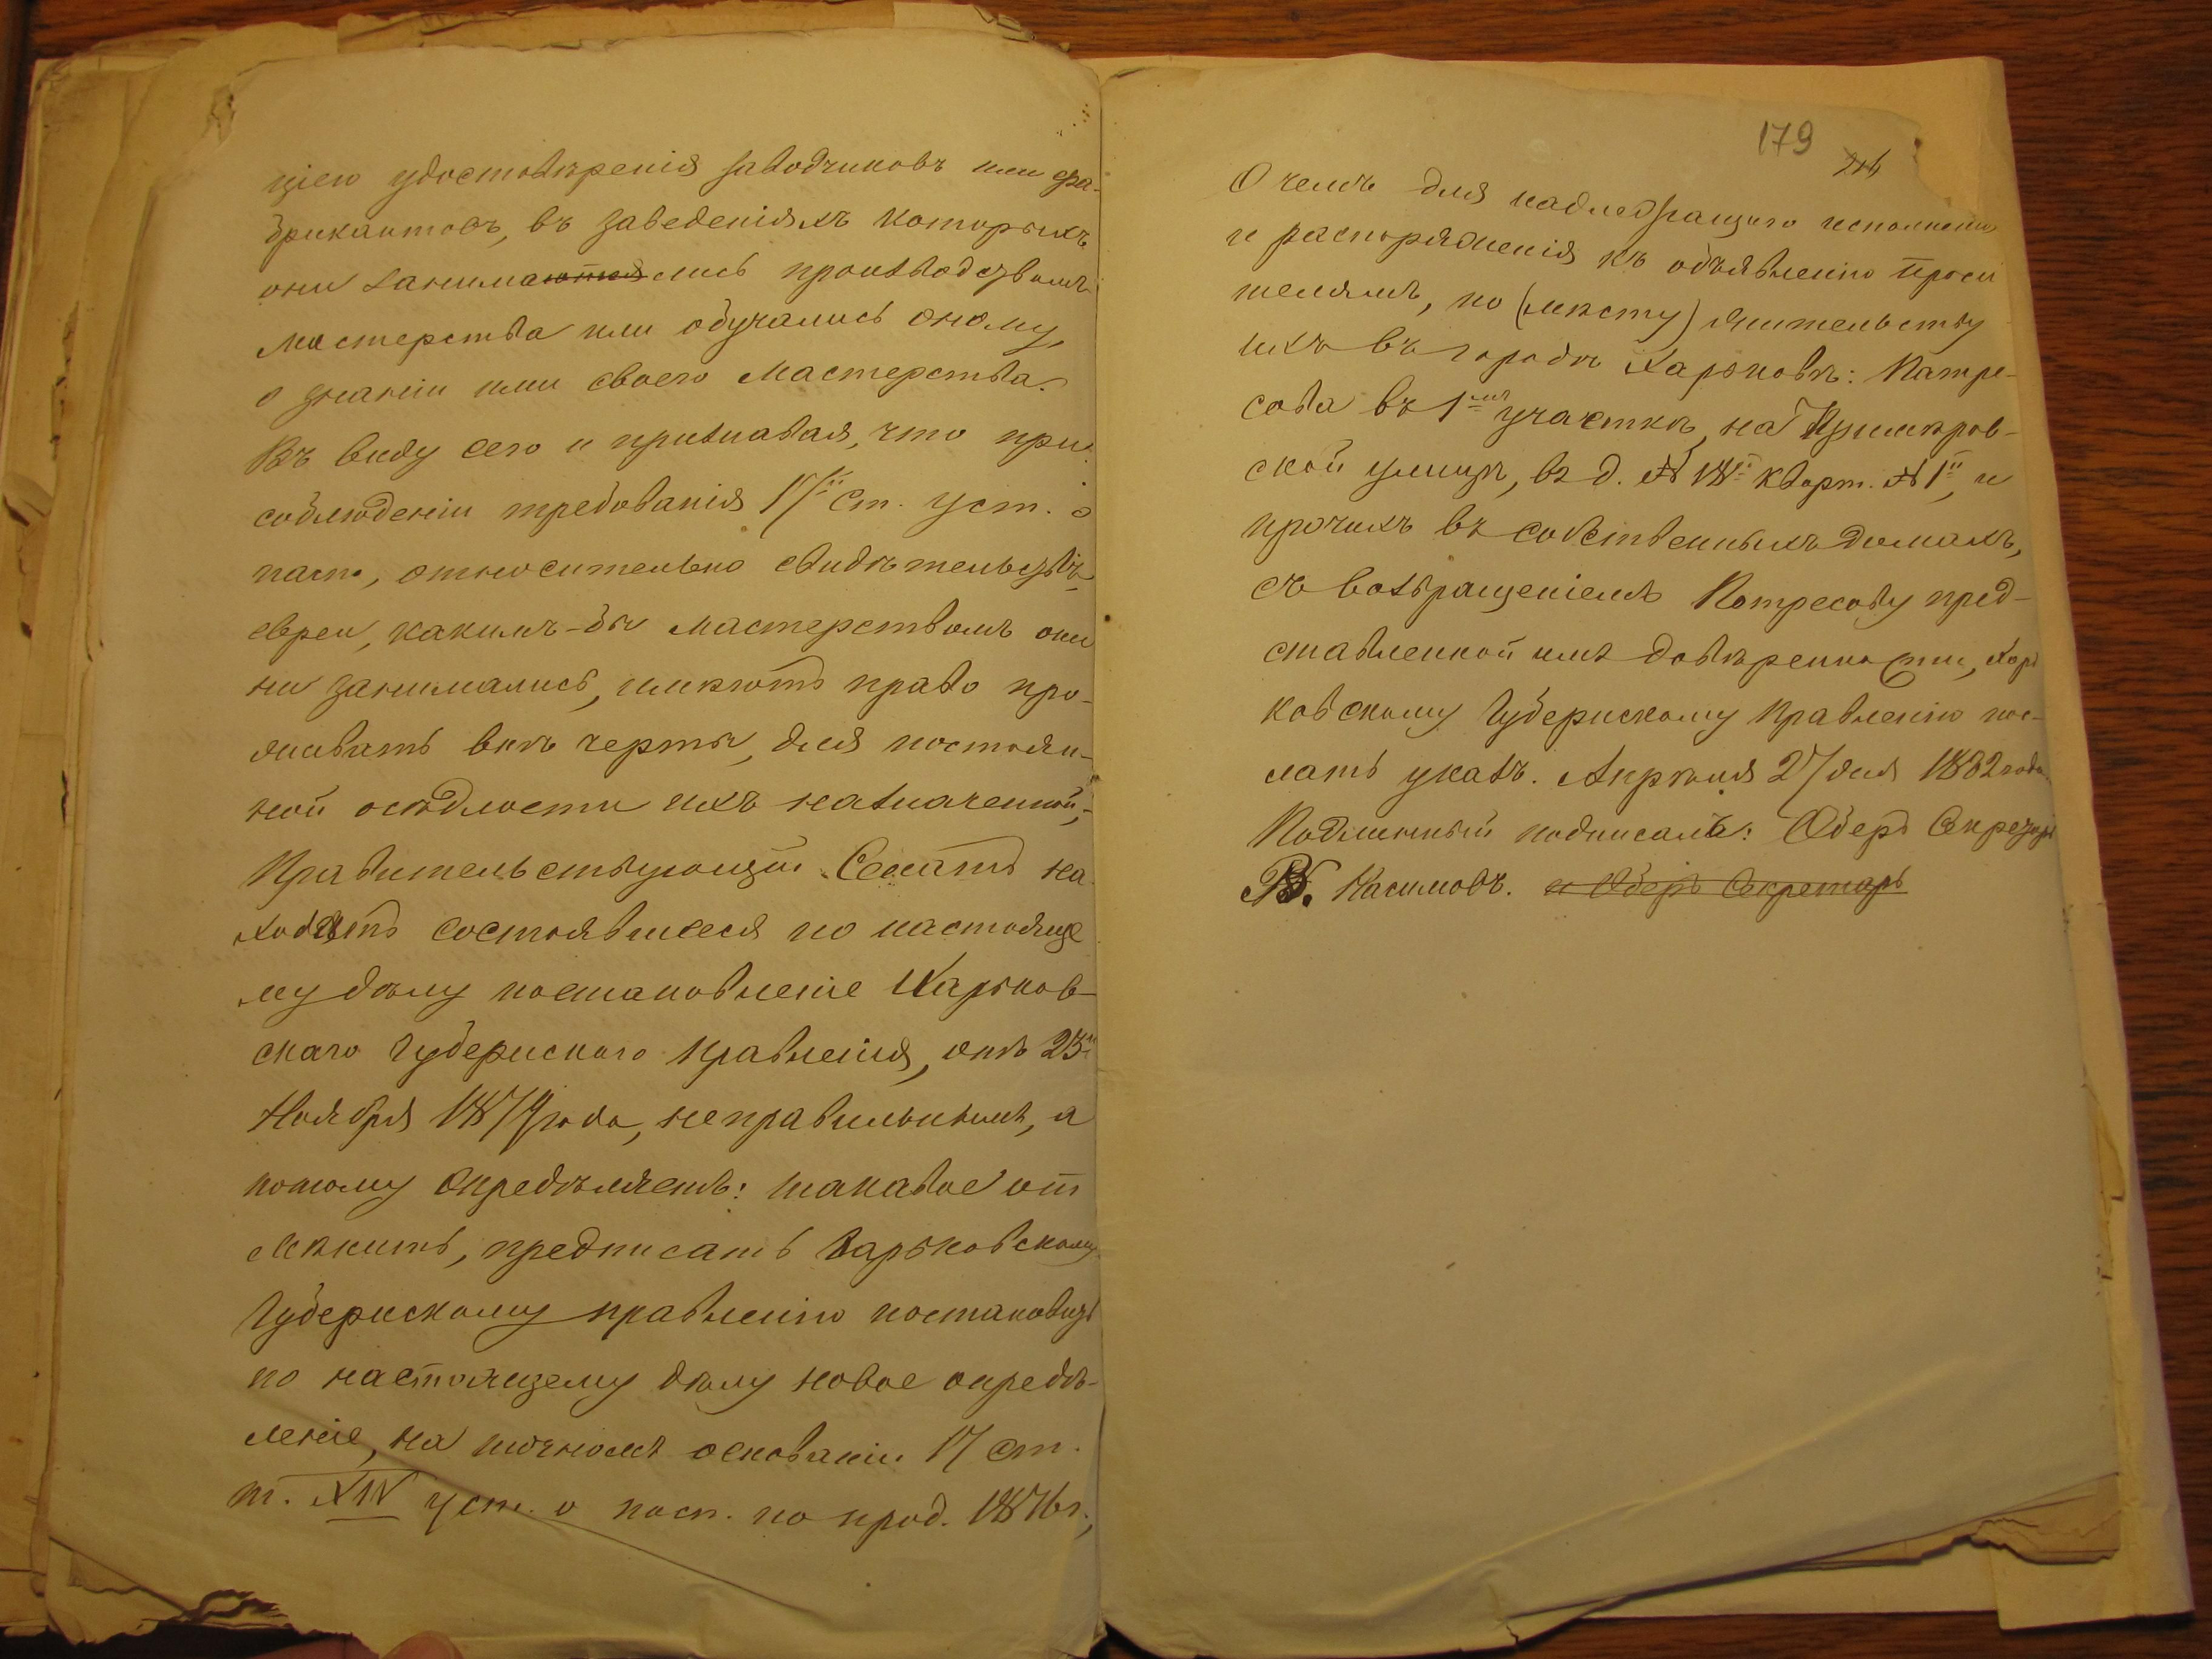 ціею удостовѣренія заводчиковъ или фа-
брикантовъ, въ заведеніяхъ которыхъ
они занимаются лись производствомъ
мастерства или обучались оному,
о знаніи ими своего мастерства.
Въ виду сего и признавая, что при
соблюденіи требованія 17й ст. уст. о
пасп., относительно свидѣтельствъ
евреи, какимъ-бы мастерствомъ они
ни занимались, имѣютъ право про-
живать внѣ черты, для постоян-
ной осѣдлости ихъ назначенной,
Правительствующій Сенатъ на
ходитъ состоявшееся по настояще
му дѣлу постановленіе Харьков-
скаго Губернскаго Правленія, отъ 23го
Ноября 1879 года, неправильнымъ, а
потому Опредѣляетъ: таковое от
мѣнить, предписать Харьковскому
Губернскому правленію постановить
по настоящему дѣлу новое опредѣ-
леніе, на точномъ основаніи 17 ст.
т. XIV уст. о пасп. по прод. 1876 г.,
179
О чемъ для надлежащаго исполненія
и распоряженія къ объявленію Проси
телямъ, по (мѣсту) жительству
ихъ въ городѣ Харьковѣ: Патре-
сова въ 1мъ участкѣ, на
ской улицѣ, въ д. № кварт. № 1й, и
прочихъ въ собственныхъ домахъ,
съ возвращеніемъ Потресову пред-
ставленной имъ довѣренности, Харь
ковскому Губернскому Правленію пос-
лать указъ. Апрѣля 27 дня 1882 года.
Подлинный подписалъ: Оберъ Секретарь
Касимовъ. и Оберъ Секретарь